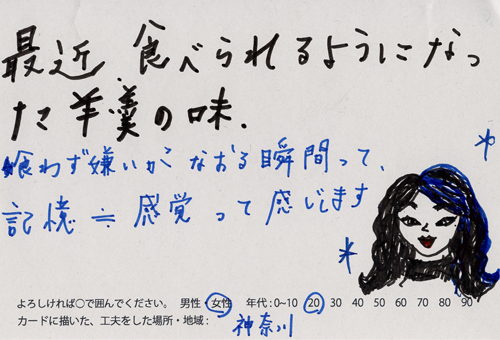 最近、食べられるようになっ
た羊羹の味.
喰わず嫌いがなおる瞬間って、
記憶≒感覚って感じします
よろしければ○で囲んでください。 男性・女性 年代：0~10 20 30 40 50 60 70 80 90
カードに描いた、工夫をした場所・地域： 神奈川